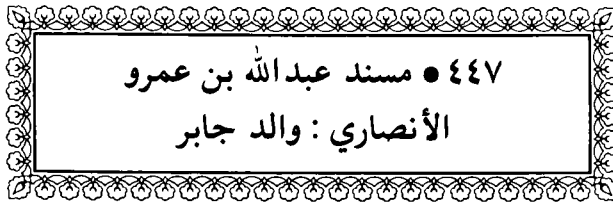 ٤٤٧ ● مسند عبدالله بن عمرو
الأنصاري : والد جابر